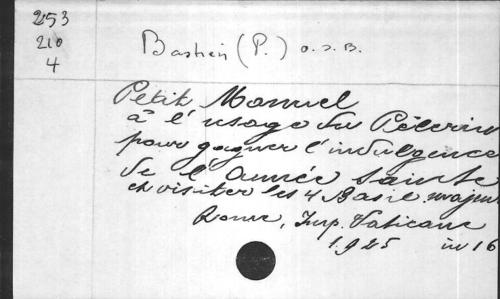 253
210
4
Bastien (P.) O.S.B.
Petit Manuel
à l'usage du Pèlerin
pour gagner l'indulgence
de l'Année Sainte
et visiter les 4 Basil. majeu
Rome, Imp. Vaticane
1925 in 16